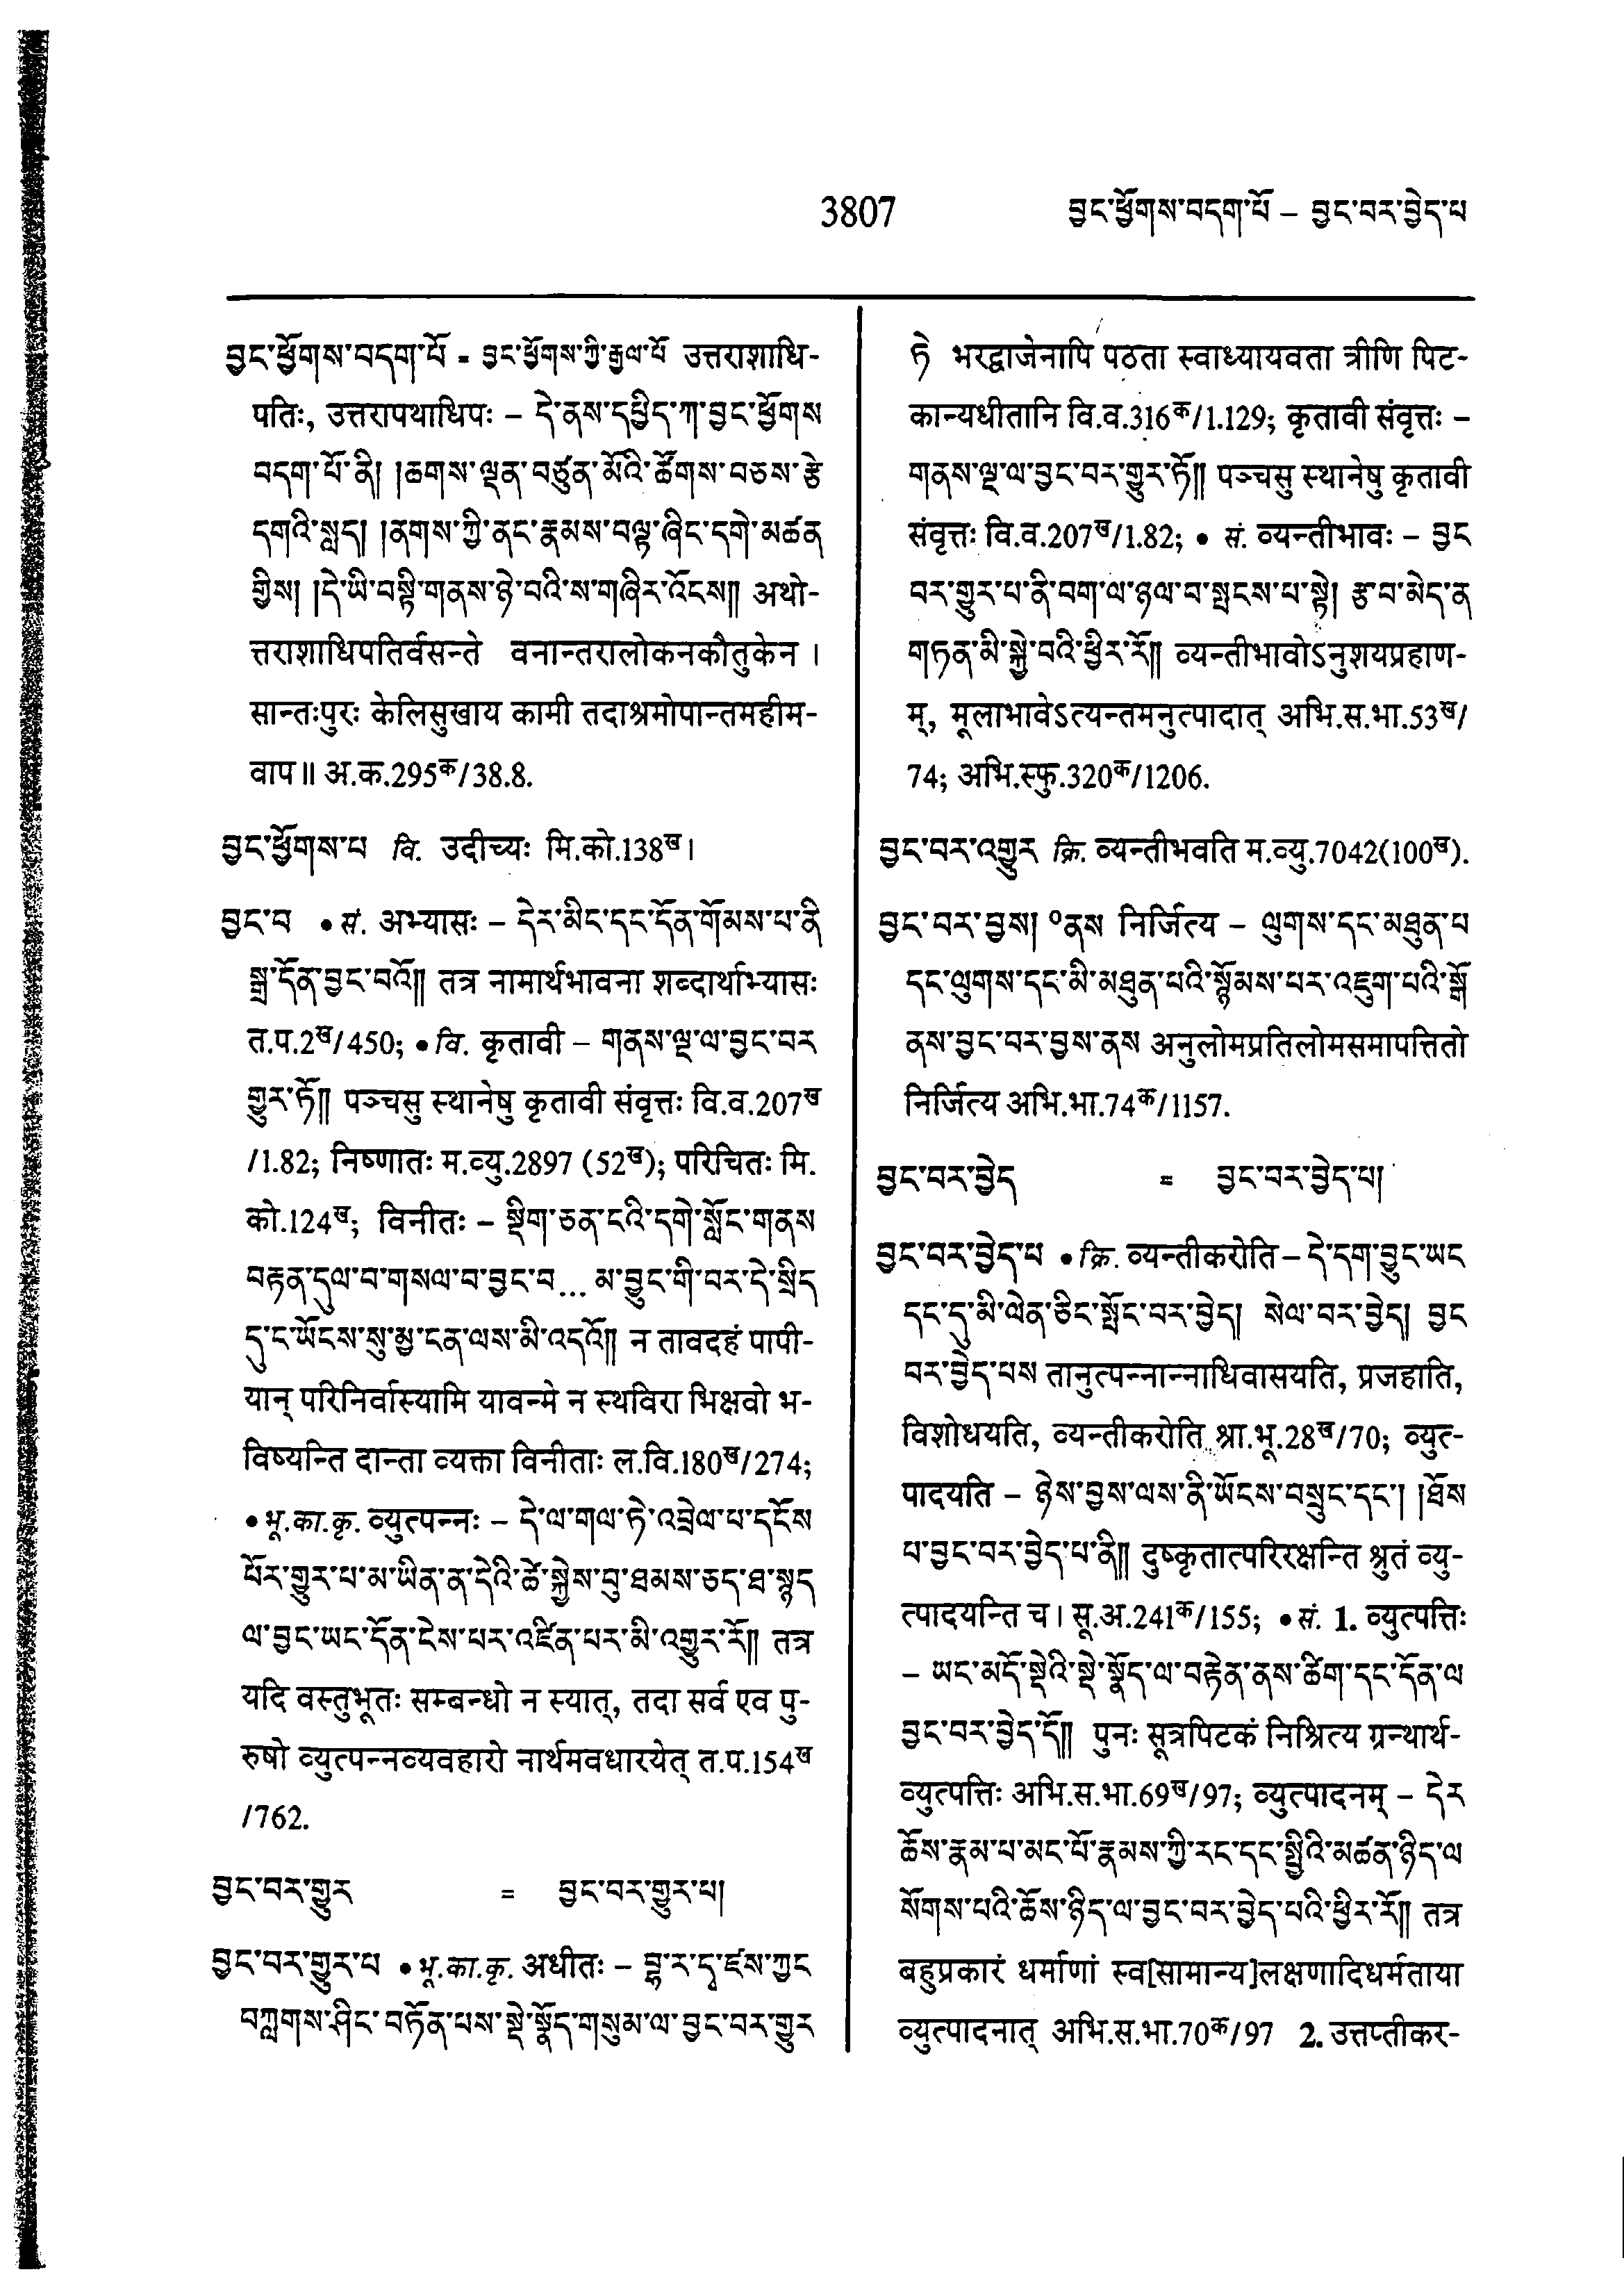 3807
བྱང་ཕྱོགས་བདག་པོ – བྱང་བར་བྱེད་པ
བྱང་ཕྱོགས་བདག་པོ = བྱང་ཕྱོགས་ཀྱི་རྒྱལ་པོ उत्तराशाधि-
पतिः, उत्तरापथाधिपः – དེ་ནས་དཔྱིད་ཀ་བྱང་ཕྱོགས
བདག་པོ་ནི། །ཆགས་ལྡན་བཙུན་མོའི་ཚོགས་བཅས་རྩེ
དགའི་སླད། །ནགས་ཀྱི་ནང་རྣམས་བལྟ་ཞིང་དགེ་མཚན
གྱིས། །དེ་ཡི་བསྟི་གནས་ཉེ་བའི་ས་གཞིར་འོངས།། अथो-
त्तराशाधिपतिर्वसन्ते वनान्तरालोकनकौतुकेन ।
सान्तःपुरः केलिसुखाय कामी तदाश्रमोपान्तमहीम-
वाप ॥ अ.क.295क/38.8.
བྱང་ཕྱོགས་པ वि. उदीच्यः मि.को.138ख ।
བྱང་བ • सं. अभ्यासः – དེར་མིང་དང་དོན་གོམས་པ་ནི
སྒྲ་དོན་བྱང་བའོ།། तत्र नामार्थभावना शब्दार्थाभ्यासः
त.प.2ख/450; • वि. कृतावी – གནས་ལྔ་ལ་བྱང་བར
གྱུར་ཏོ།། पञ्चसु स्थानेषु कृतावी संवृत्तः वि.व.207ख
/1.82; निष्णातः म.व्यु.2897 (52ख); परिचितः मि.
को.124ख; विनीतः – སྡིག་ཅན་ངའི་དགེ་སློང་གནས
བརྟན་དུལ་བ་གསལ་བ་བྱང་བ... མ་བྱུང་གི་བར་དེ་སྲིད
དུ་ང་ཡོངས་སུ་མྱ་ངན་ལས་མི་འདའོ།། न तावदहं पापी-
यान् परिनिर्वास्यामि यावन्मे न स्थविरा भिक्षवो भ-
विष्यन्ति दान्ता व्यक्ता विनीताः ल.वि.180ख/274;
• भू.का.कृ. व्युत्पन्नः – དེ་ལ་གལ་ཏེ་འབྲེལ་པ་དངོས
པོར་གྱུར་པ་མ་ཡིན་ན་དེའི་ཚེ་སྐྱེས་བུ་ཐམས་ཅད་ཐ་སྙད
ལ་བྱང་ཡང་དོན་ངེས་པར་འཛིན་པར་མི་འགྱུར་རོ།། तत्र
यदि वस्तुभूतः सम्बन्धो न स्यात्, तदा सर्व एव पु-
रुषो व्युत्पन्नव्यवहारो नार्थमवधारयेत् त.प.154ख
/762.
བྱང་བར་གྱུར = བྱང་བར་གྱུར་པ།
བྱང་བར་གྱུར་པ • भू.का.कृ. अधीतः – བྷ་ར་དྭ་ཛས་ཀྱང
བཀླགས་ཤིང་བཏོན་པས་སྡེ་སྣོད་གསུམ་ལ་བྱང་བར་གྱུར
ཏེ भरद्वाजेनापि पठता स्वाध्यायवता त्रीणि पिट-
कान्यधीतानि वि.व.316क/1.129; कृतावी संवृत्तः –
གནས་ལྔ་ལ་བྱང་བར་གྱུར་ཏོ།། पञ्चसु स्थानेषु कृतावी
संवृत्तः वि.व.207ख/1.82; • सं. व्यन्तीभावः – བྱང
བར་གྱུར་པ་ནི་བག་ལ་ཉལ་བ་སྤངས་པ་སྟེ། རྩ་བ་མེད་ན
གཏན་མི་སྐྱེ་བའི་ཕྱིར་རོ།། व्यन्तीभावोऽनुशयप्रहाण-
म्, मूलाभावेऽत्यन्तमनुत्पादात् अभि.स.भा.53ख/
74; अभि.स्फु.320क/1206.
བྱང་བར་འགྱུར क्रि. व्यन्तीभवति म.व्यु.7042(100ख).
བྱང་བར་བྱས། ॰ནས निर्जित्य – ལུགས་དང་མཐུན་པ
དང་ལུགས་དང་མི་མཐུན་པའི་སྙོམས་པར་འཇུག་པའི་སྒོ
ནས་བྱང་བར་བྱས་ནས अनुलोमप्रतिलोमसमापत्तितो
निर्जित्य अभि.भा.74क/1157.
བྱང་བར་བྱེད = བྱང་བར་བྱེད་པ།
བྱང་བར་བྱེད་པ • क्रि. व्यन्तीकरोति – དེ་དག་བྱུང་ཡང
དང་དུ་མི་ལེན་ཅིང་སྤོང་བར་བྱེད། སེལ་བར་བྱེད། བྱང
བར་བྱེད་པས तानुत्पन्नान्नाधिवासयति, प्रजहाति,
विशोधयति, व्यन्तीकरोति श्रा.भू.28ख/70; व्युत्-
पादयति – ཉེས་བྱས་ལས་ནི་ཡོངས་བསྲུང་དང་། །ཐོས
པ་བྱང་བར་བྱེད་པ་ནི།། दुष्कृतात्परिरक्षन्ति श्रुतं व्यु-
त्पादयन्ति च । सू.अ.241क/155; • सं. 1. व्युत्पत्तिः
– ཡང་མདོ་སྡེའི་སྡེ་སྣོད་ལ་བརྟེན་ནས་ཚིག་དང་དོན་ལ
བྱང་བར་བྱེད་དོ།། पुनः सूत्रपिटकं निश्रित्य ग्रन्थार्थ-
व्युत्पत्तिः अभि.स.भा.69ख/97; व्युत्पादनम् – དེར
ཆོས་རྣམ་པ་མང་པོ་རྣམས་ཀྱི་རང་དང་སྤྱིའི་མཚན་ཉིད་ལ
སོགས་པའི་ཆོས་ཉིད་ལ་བྱང་བར་བྱེད་པའི་ཕྱིར་རོ།། तत्र
बहुप्रकारं धर्माणां स्व[सामान्य]लक्षणादिधर्मताया
व्युत्पादनात् अभि.स.भा.70क/97 2. उत्तप्तीकर-